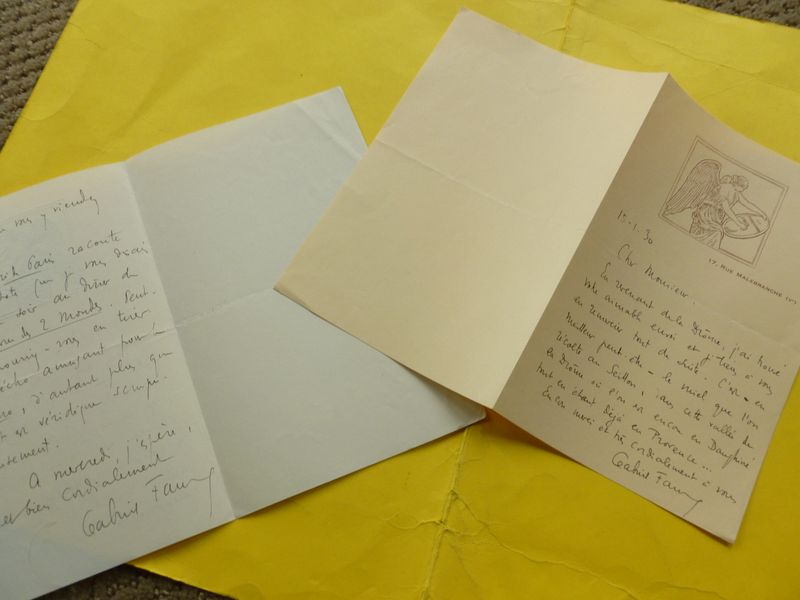 vous y viendrez
Paris raconte
que je vous disais
soir au dîner de
des 2 Mondes. Peut-
vous en tirer
écho amusant pour
d'autant plus que
est véridique scrupu-
A mercredi, j'espère,
et bien cordialement
Gabriel Faure
17, RUE MALEBRANCHE (Vᵉ)
15-1-30
Cher Monsieur.
En revenant de la Drôme, j'ai trouvé
votre aimable envoi et je tiens à vous
en remercier tout de suite. C'est - en
meilleur peut-être - le miel que l'on
récolte au Seillon, dans cette vallée de
la Drôme où l'on est encore en Dauphiné
tout en étant déjà en Provence...
Encore merci et très cordialement à vous
Gabriel Faure